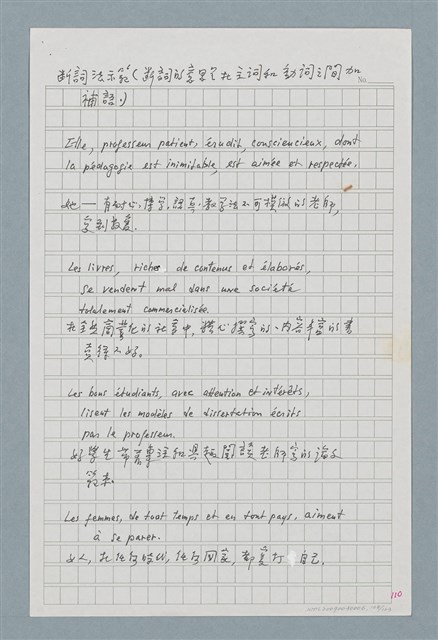 断詞法示範(断詞的意思是在主词和動词之間加
補語。)
No.
Elle, professeur patient, érudit, consciencieux, dont
la pédagogie est inimitable, est aimée et respectée.
她——有耐心、博学、認真、教学法不可模倣的老師,
受到敬愛.
Les livres, riches de contenus et élaborés,
se vendent mal dans une société
totalement commercialisée.
在全然商業化的社會中,精心撰寫的、内容丰富的書
賣得不好。
Les bons étudiants, avec attention et intérêts,
lisent les modèles de dissertation écrits
par le professeur.
好學生帶着專注和興趣閱讀老師寫的論文
範本.
Les femmes, de tout temps et en tout pays, aiment
à se parer.
女人,在任何時代,任何国家,都愛打 自己.
110